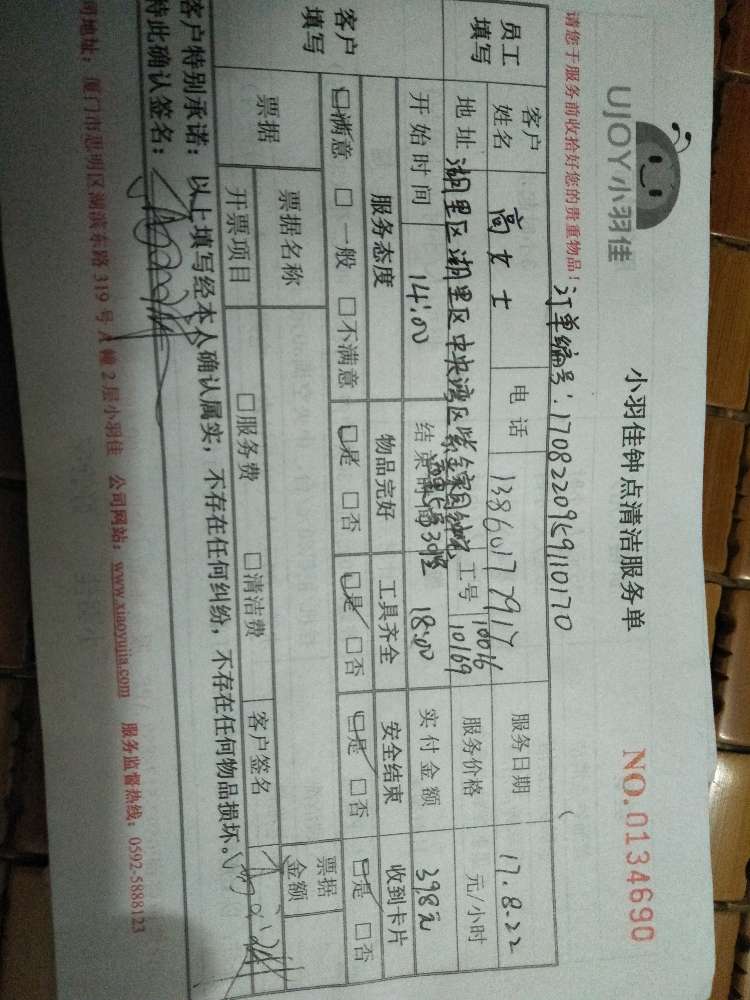 UJOY小羽佳
小羽佳钟点清洁服务单
NO.0134690
请您于服务前收拾好您的贵重物品！
订单编号：
员工填写
客户姓名 高女士 电话 服务日期 17.8.22
地址 湖里区湖里区中央湾区紫金家园 工号 10016 10169 服务价格 元/小时
开始时间 14:00 结束时间 18:00 实付金额 398元
客户填写
服务态度 物品完好 工具齐全 安全结束 收到卡片
□满意 □一般 □不满意 □是 □否 □是 □否 □是 □否 □是 □否
票据
票据名称 票据金额
开票项目 □服务费 □清洁费 客户签名
客户特别承诺：以上填写经本人确认属实，不存在任何纠纷，不存在任何物品损坏。
特此确认签名：
司地址：厦门市思明区湖滨东路319号A幢2层小羽佳 公司网站：www.xiaoyujia.com 服务监督热线：0592-5888123